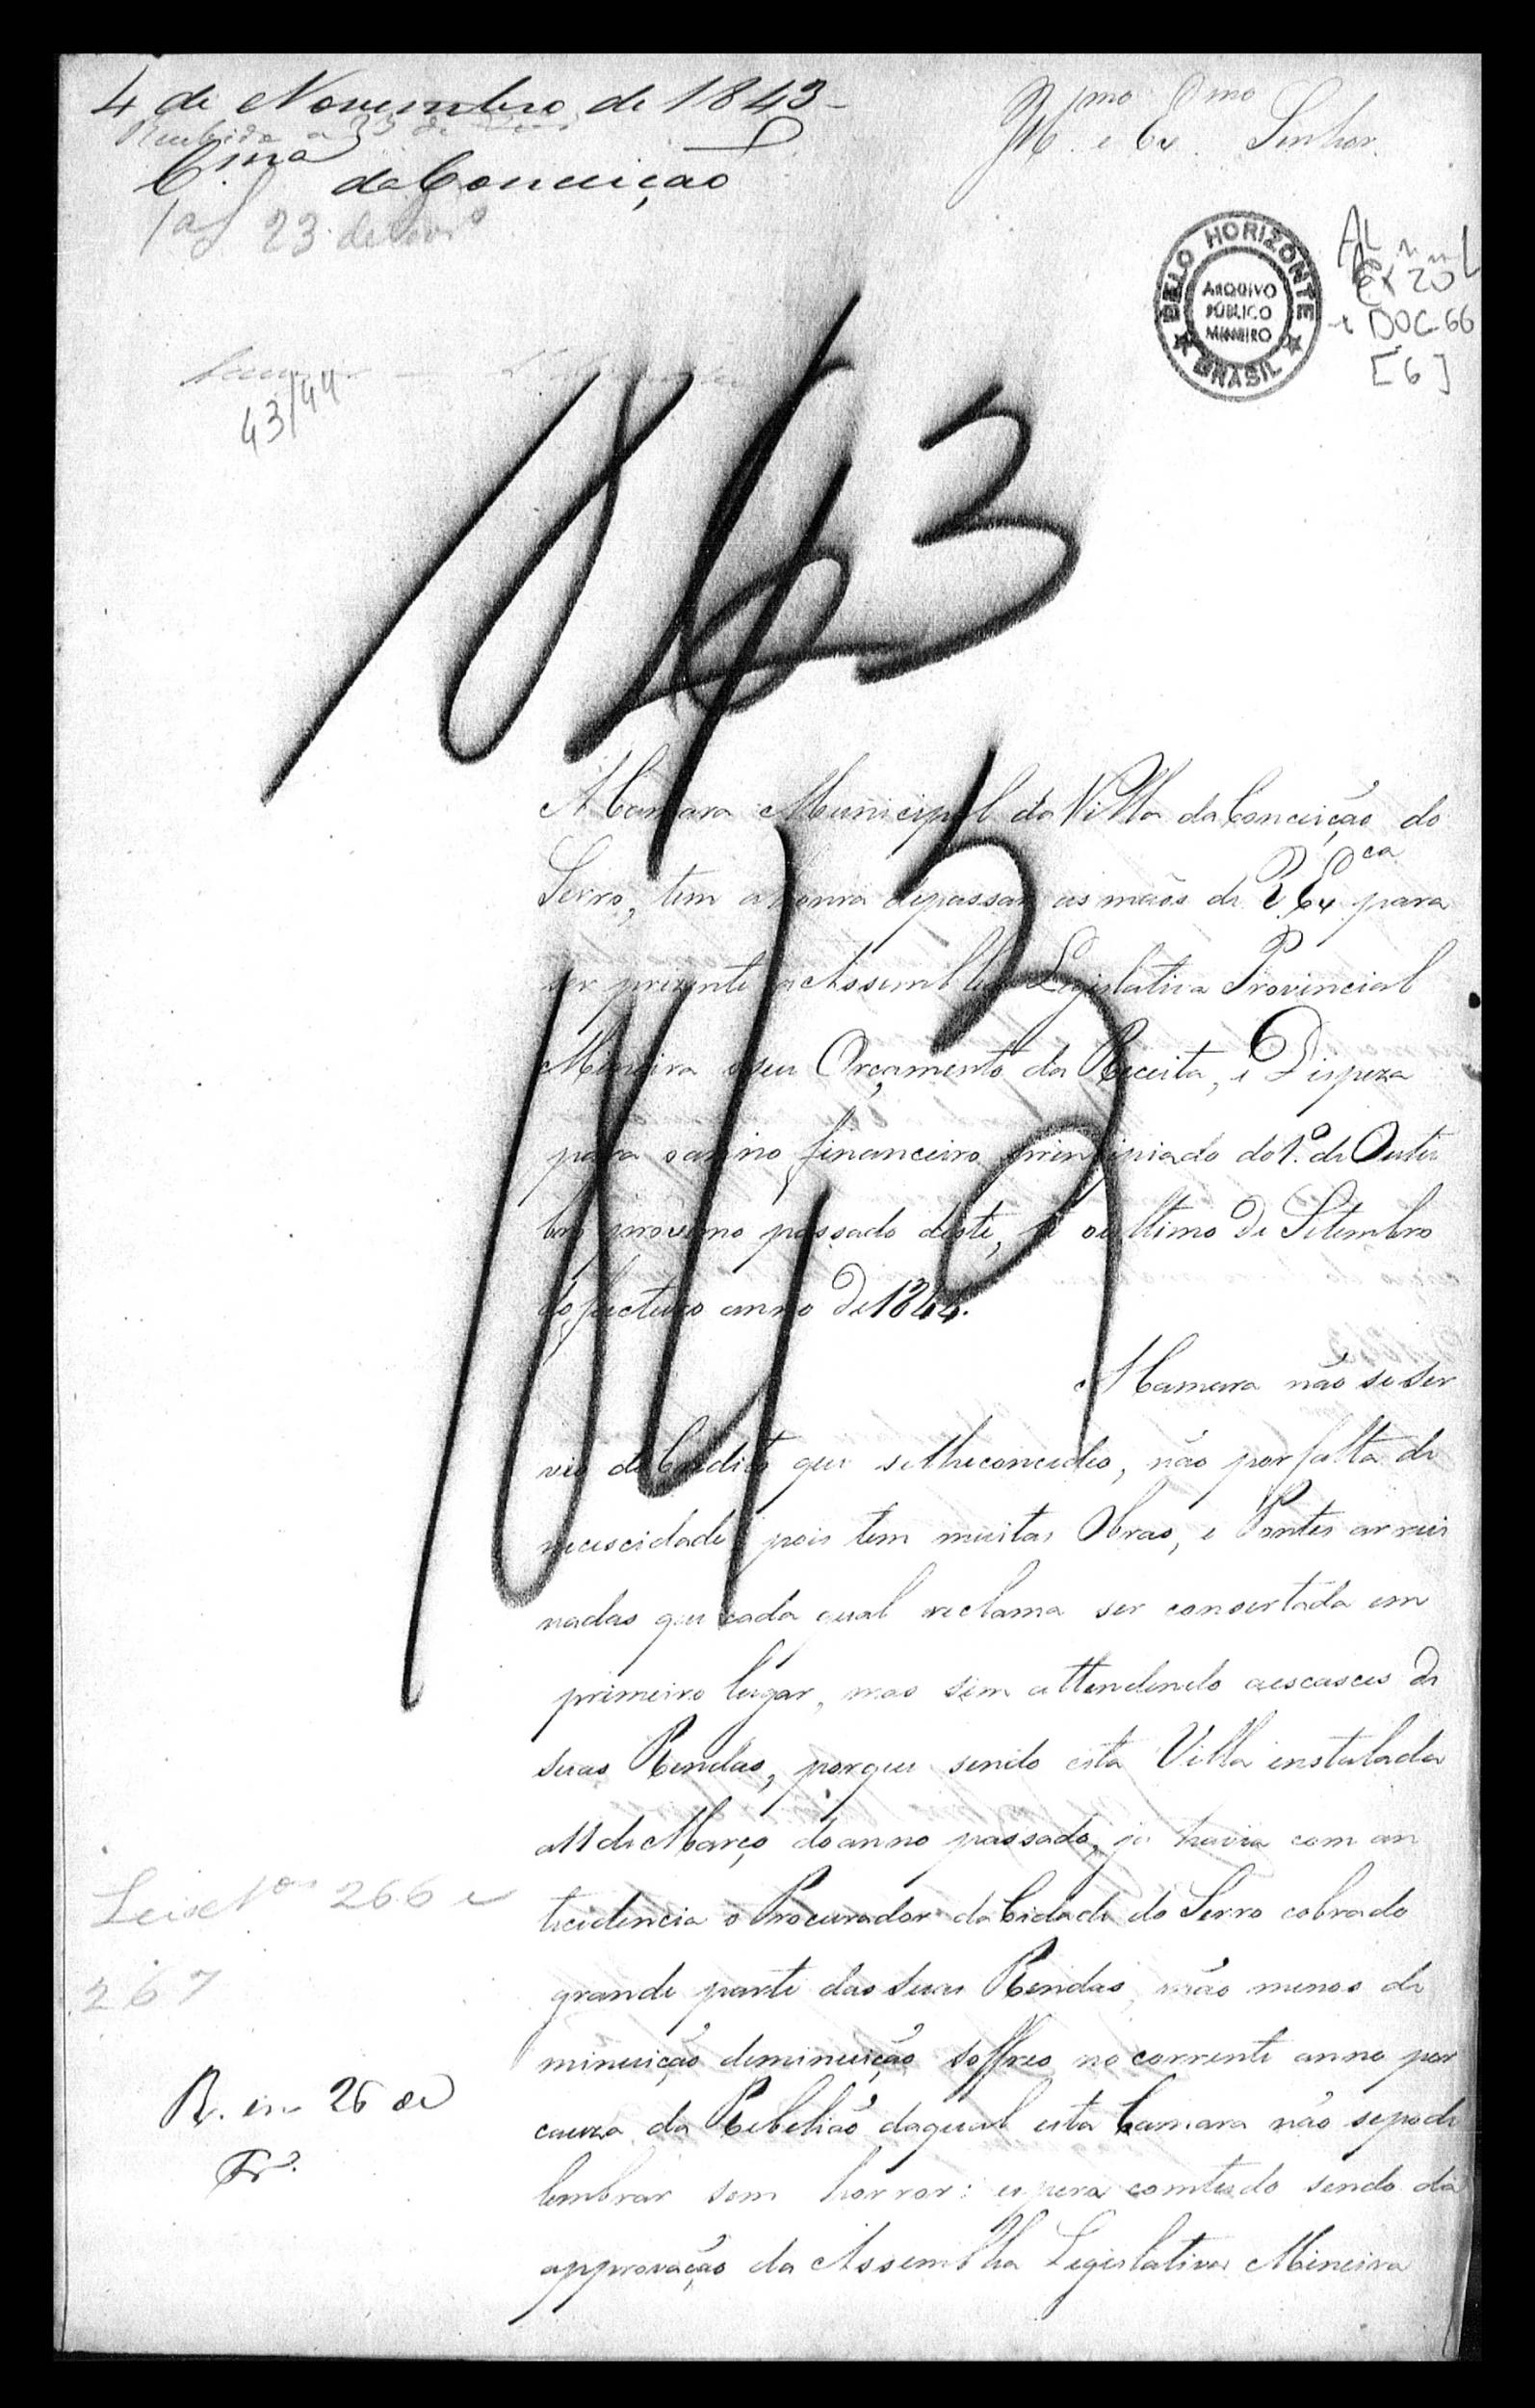 4 de Novembro de 1843
Recebida a
C.ma da Conceição
1ª S 23 de
Illmo e Exmo Senhor.
BELO HORIZONTE
ARQUIVO
PÚBLICO
MINEIRO
BRASIL
CX 20
DOC. 66
[6]
43/44
1843
1843
A Camara Municipal da Villa da Conceição do
Serro, tem a honra depassar as mãos de V. Exca para
ser prezente a Assemblea Legislativa Provincial
Mineira o seu Orçamento da Receita, e Dispeza
para o anno financeiro principiado do 1º de Outu
bro proximo passado deste, a oultimo de Setembro
do fucturo anno de 1844.
A Camara não se ser
vio do Credito que selheconcedeo, não por falta de
necescidade pois tem muitas Obras, e Pontes arrui
nadas que cada qual reclama ser consertada em
primeiro lugar, mas sim attendendo aescasces de
suas Rendas, porque sendo esta Villa instalada
a11 de Março doanno passado, ja havia com an
tecidencia o Procurador da Cidade do Serro cobrado
grande parte das suas Rendas, não menos di
minuição deminuição soffreo no corrente anno por
cauza da Rebelião daqual esta Camara não sepode
lembrar sem horror: espera comtudo sendo da
approvação da Assemblea Legislativa Mineira
Leis Nos 266 e
267
R. em 26 de